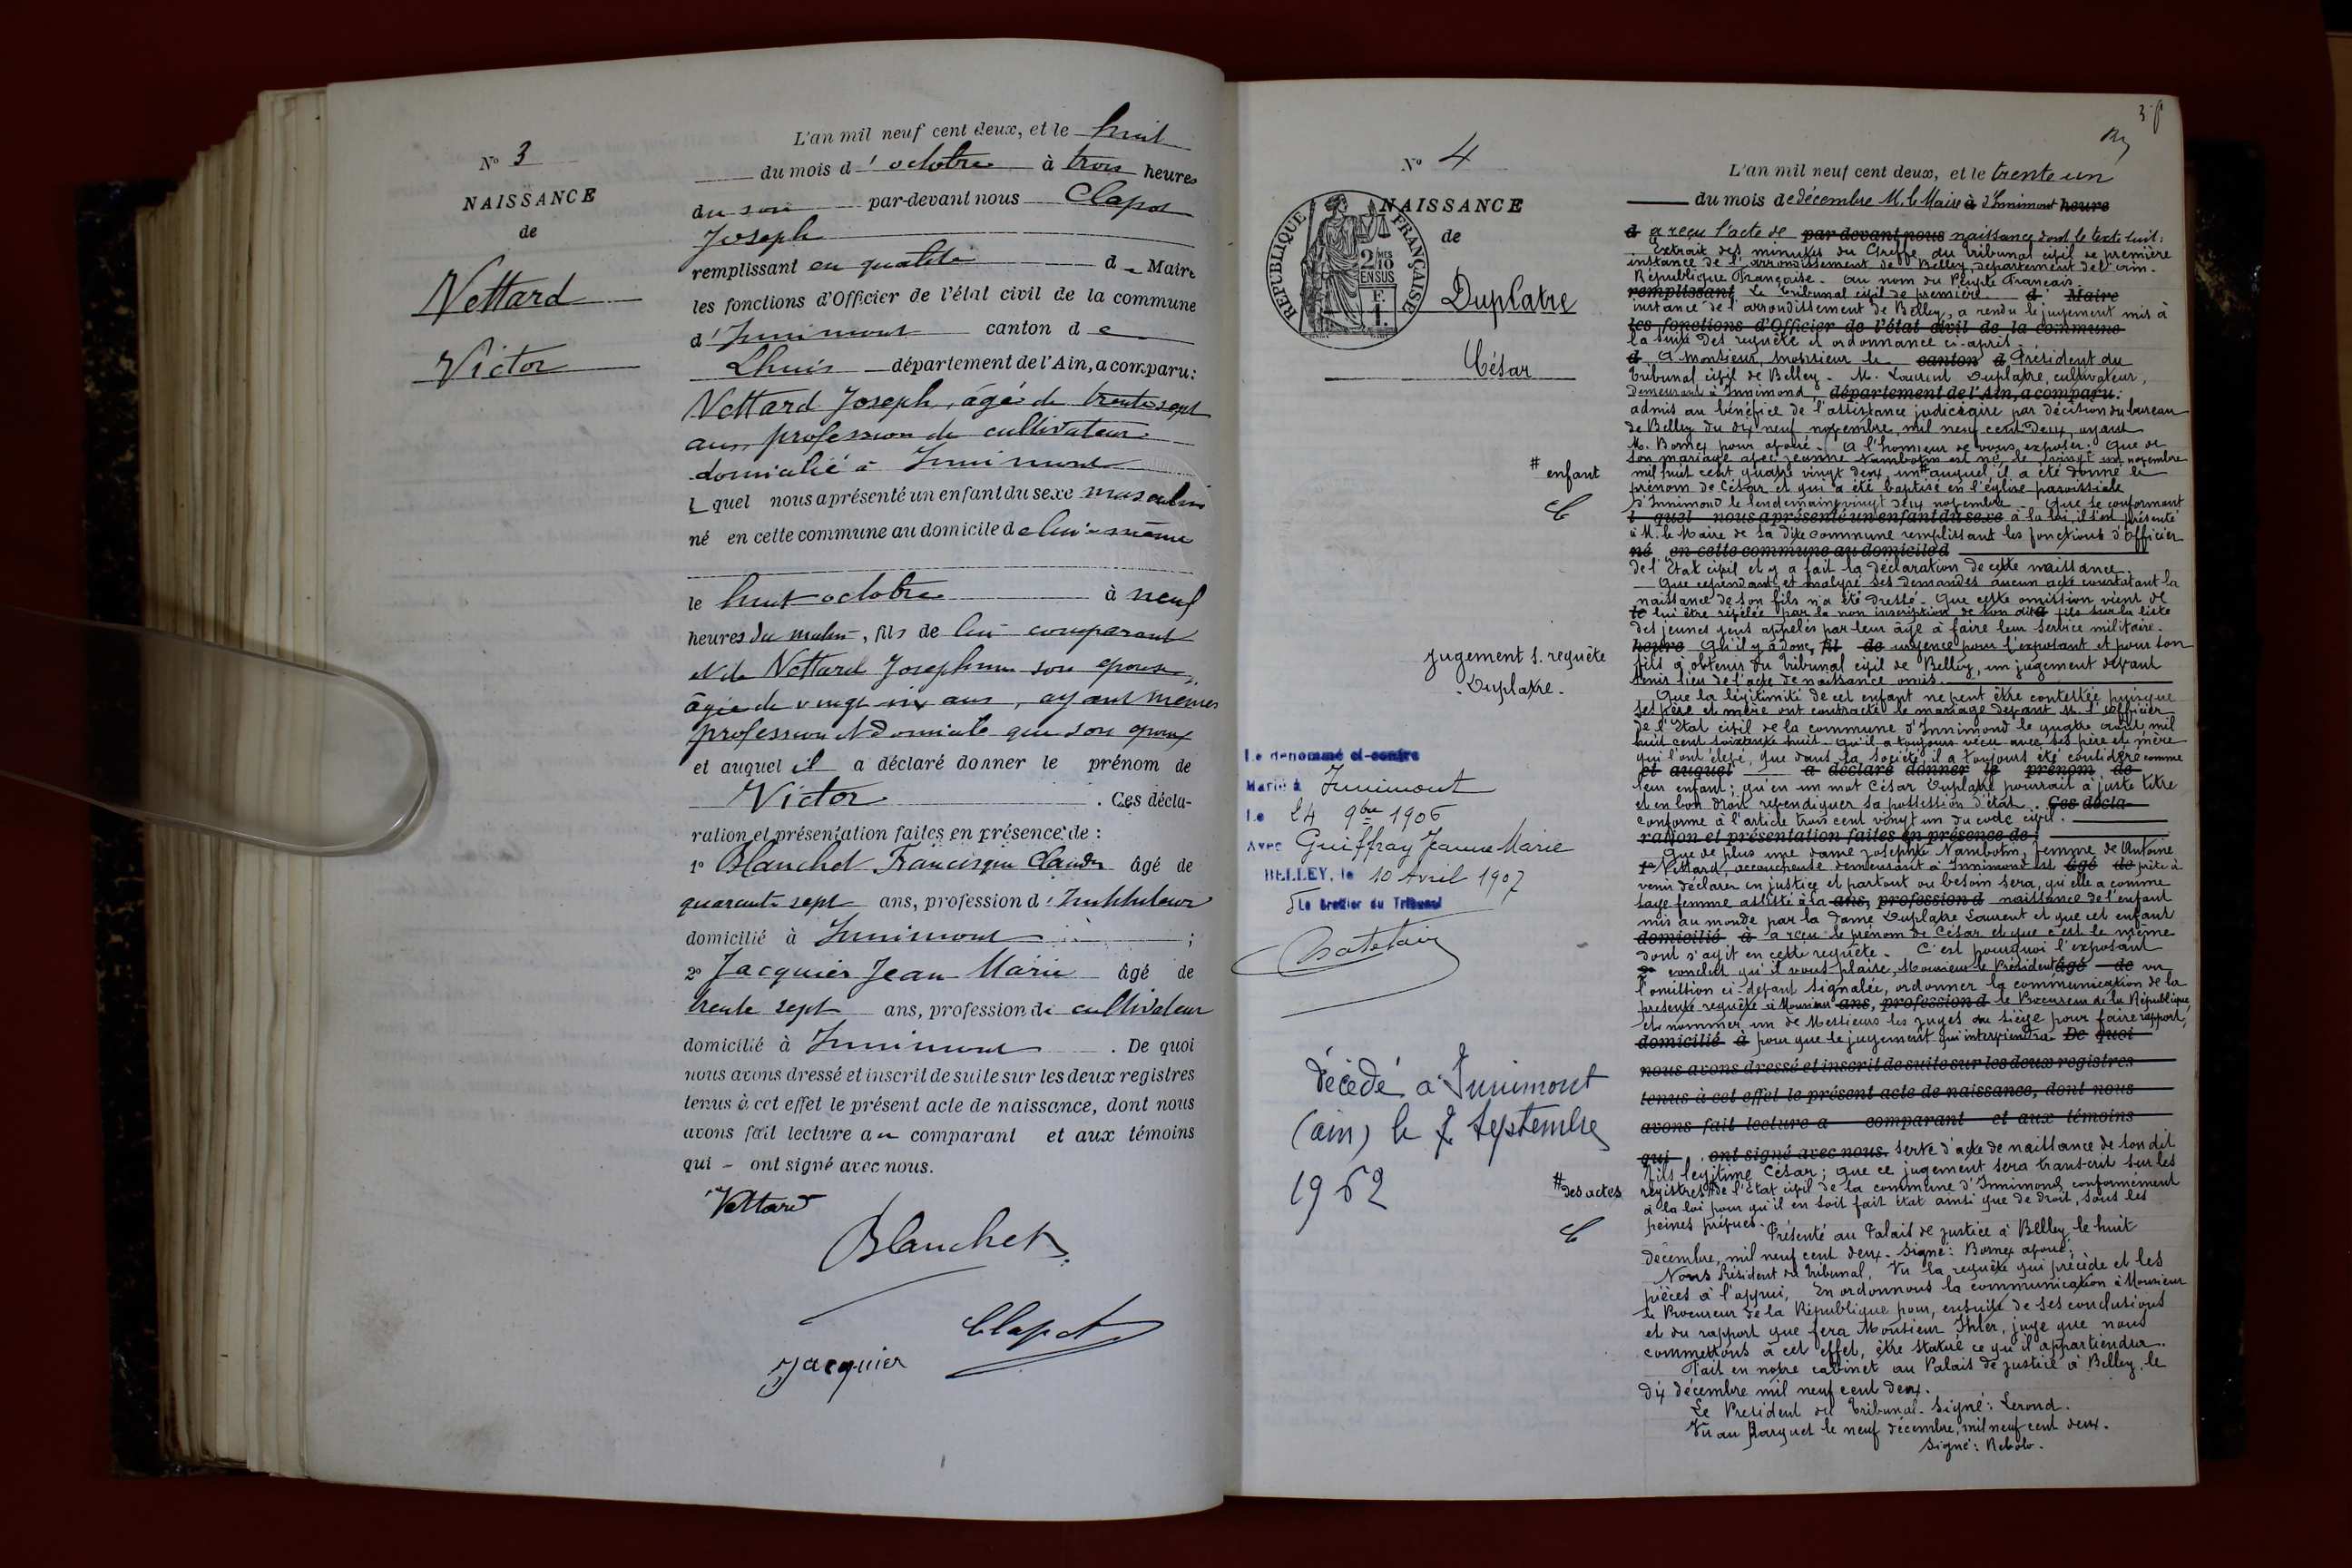 N° 3
NAISSANCE
de
Vettard
Victor
L'an mil neuf cent deux, et le huit
du mois d'octobre à trois heures
du soir par-devant nous Clapot
Joseph
remplissant en qualité d Maire
les fonctions d'Officier de l'état civil de la commune
d'Innimont canton de
Lhuis département de l'Ain, a comparu:
Vettard Joseph, âgé de trente sept
ans, profession de cultivateur
domicilié à Innimont
L quel nous a présenté un enfant du sexe masculin
né en cette commune au domicile de lui-même
le huit octobre à neuf
heures du matin, fils de lui comparant
et de Vettard Josephine son épouse,
âgée de vingt six ans, ayant mêmes
profession et domicile que son époux
et auquel il a déclaré donner le prénom de
Victor . Ces décla-
ration et présentation faites en présence de :
1° Blanchet Francisque Claude âgé de
quarante sept ans, profession d'Instituteur
domicilié à Innimont ;
2° Jacquier Jean Marie âgé de
trente sept ans, profession de cultivateur
domicilié à Innimont . De quoi
nous avons dressé et inscrit de suite sur les deux registres
tenus à cet effet le présent acte de naissance, dont nous
avons fait lecture au comparant et aux témoins
qui - ont signé avec nous.
Vettard
Blanchet
Clapot
Jacquier
N° 4
REPUBLIQUE FRANÇAISE
2 MES
10
EN SUS
NAISSANCE
de
Duplatre
César
# enfant
jugement s. requête
Duplatre.
Le dénommé ci-contre
Marié à Innimont
Le 24 9bre 1906
Avec Guiffray Jeanne Marie
BELLEY, le 10 Avril 1907
Le Greffier du Tribunal
Chatelain
décédé à Innimont
(ain) le 2 Septembre
1962
# des actes
L'an mil neuf cent deux, et le trente un
du mois de décembre M. le Maire à d'Innimont heure
d a reçu l'acte de par devant nous naissance dont le texte suit:
Extrait des minutes du Greffe du tribunal civil de première
instance de l'arrondissement de Belley, département de l'ain.
République Française. Au nom du Peuple Français
remplissant Le Tribunal civil de première d Maire
instance de l'arrondissement de Belley, a rendu le jugement mis à
les fonctions d'Officier de l'état civil de la commune
la suite des requête et ordonnance ci-après.
d A Monsieur, Monsieur le canton d Président du
Tribunal civil de Belley. M. Laurent Duplatre, cultivateur,
demeurant à Innimond, département de l'Ain, a comparu:
admis au bénéfice de l'assistance judiciaire par décision du bureau
de Belley du dix neuf novembre, mil neuf cent deux, ayant
M. Bornex pour avoué. A l'honneur de vous exposer: Que de
son mariage avec Jeanne Nambotin est né le vingt un novembre
mil huit cent quatre vingt deux, un # auquel il a été donné le
prénom de César et qui a été baptisé en l'église paroissiale
d'Innimond le lendemain vingt deux novembre. Que se conformant
l quel nous a présenté un enfant du sexe à la loi, il s'est présenté
à M. le Maire de la dite commune remplissant les fonctions d'officier
né en cette commune au domicile d
de l'Etat civil et y a fait la déclaration de cette naissance.
Que cependant et malgré ses demandes aucun acte constatant la
naissance de son fils n'a été dressé. Que cette omission vient de
le lui être révélée par la non inscription de son dit à fils sur la liste
des jeunes gens appelés par leur âge à faire leur service militaire.
heures Qu'il y a donc, fil de urgence pour l'exposant et pour son
fils à obtenir du tribunal civil de Belley, un jugement devant
tenir lieu de l'acte de naissance omis.
Que la légitimité de cet enfant ne peut être contestée puisque
ses père et mère ont contracté le mariage devant M. l'officier
de l'Etat civil de la commune d'Innimond le quatre août mil
huit cent soixante huit. Qu'il a toujours vécu avec ses père et mère
qui l'ont élevé, que dans la société il a toujours été considéré comme
et auquel a déclaré donner le prénom de
leur enfant; qu'en un mot César Duplatre pourrait à juste titre
et en bon droit revendiquer sa possession d'état. Ces décla-
conforme à l'article trois cent vingt un du code civil.
ration et présentation faites en présence de :
Que de plus une dame Josephte Nambotin, femme de Antoine
1° Vettard, accoucheuse demeurant à Innimond est âgé de prête à
venir déclarer en justice et partout où besoin sera, qu'elle a comme
sage femme assisté à la ans, profession d naissance de l'enfant
mis au monde par la dame Duplatre Laurent et que cet enfant
domicilié à a reçu le prénom de César et que c'est le même
dont s'agit en cette requête. C'est pourquoi l'exposant
2° conclut qu'il vous plaise, Monsieur le Président âgé de vu
l'omission ci-devant signalée, ordonner la communication de la
présente requête à Monsieur ans, profession d le Procureur de la République,
et nommer un de Messieurs les juges du siège pour faire rapport,
domicilié à pour que le jugement qui interviendra De quoi
nous avons dressé et inscrit de suite sur les deux registres
tenus à cet effet le présent acte de naissance, dont nous
avons fait lecture a comparant et aux témoins
qui ont signé avec nous. serve d'acte de naissance de son dit
fils légitime César; que ce jugement sera transcrit sur les
registres # de l'état civil de la commune d'Innimond conformément
à la loi pour qu'il en soit fait état ainsi que de droit, sous les
peines prévues. Présenté au Palais de justice à Belley le huit
décembre, mil neuf cent deux. Signé: Bornex avoué;
Nous Président du tribunal, Vu la requête qui précède et les
pièces à l'appui, En ordonnons la communication à Monsieur
le Procureur de la République pour, ensuite de ses conclusions
et du rapport que fera Monsieur Ihler, juge que nous
commettons à cet effet, être statué ce qu'il appartiendra.
Fait en notre cabinet au Palais de justice à Belley, le
dix décembre mil neuf cent deux.
Le Président du Tribunal. Signé: Lerond.
Vu au Parquet le neuf décembre, mil neuf cent deux.
Signé: Rebolo.